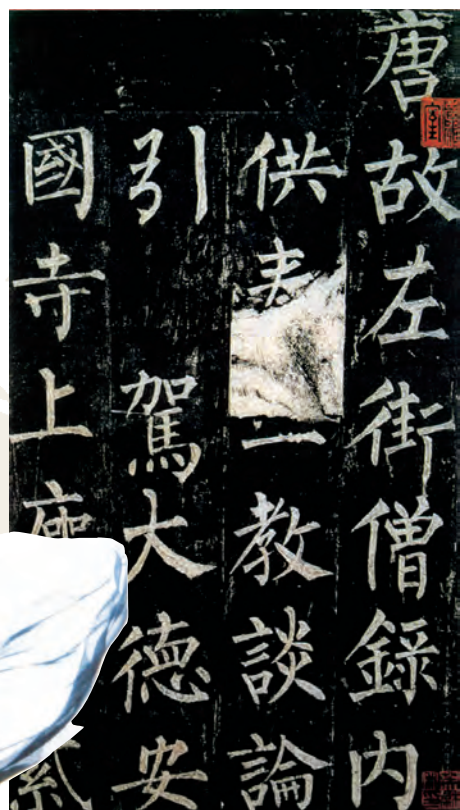 唐故左街僧錄内
供教談論
引駕大德安
國寺上